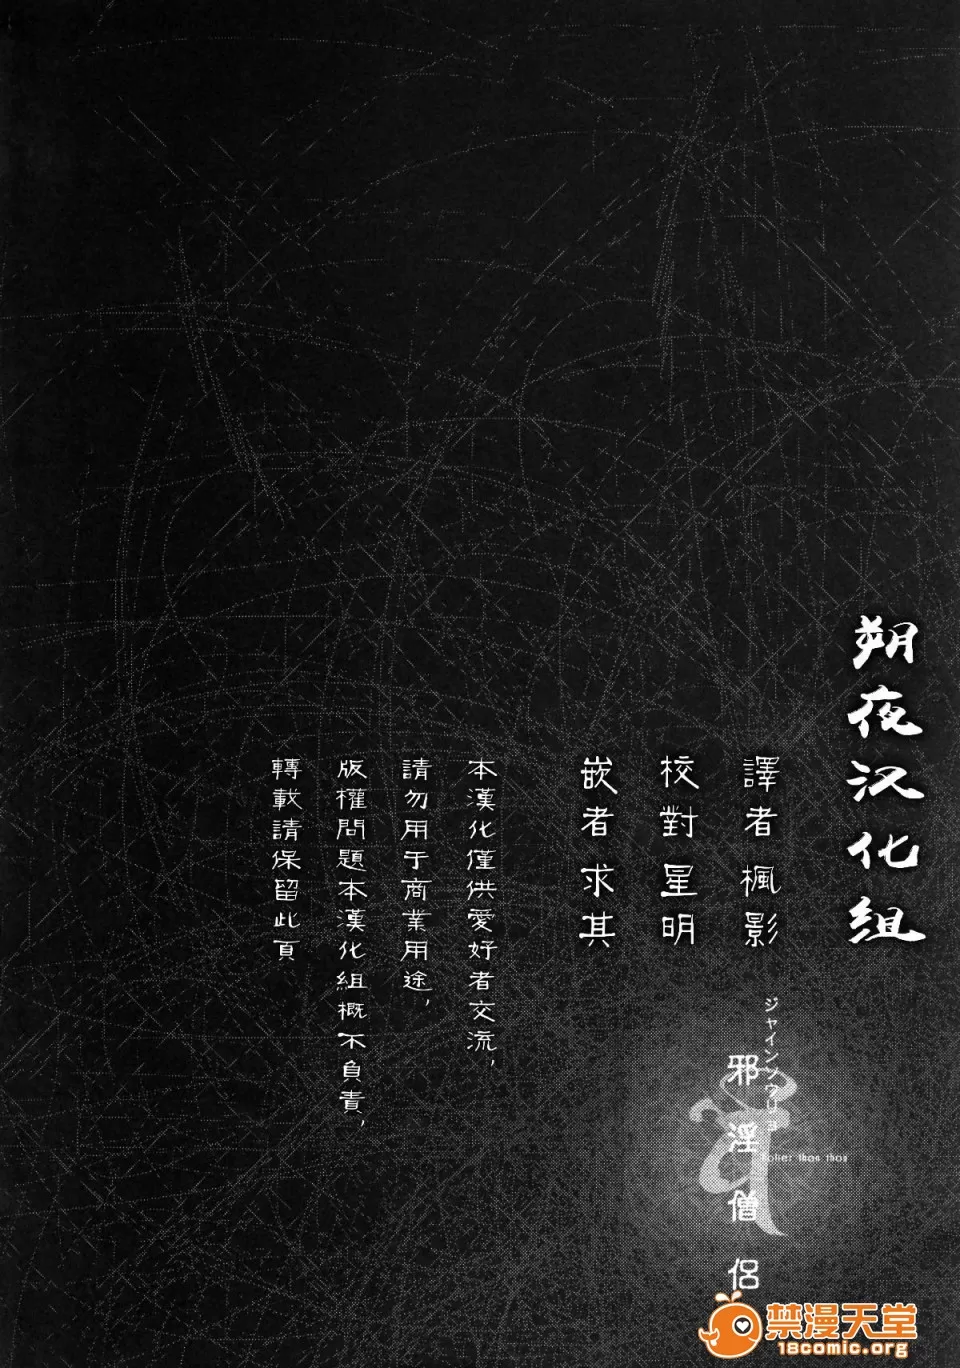 朔夜汉化组
譯者 楓影
校對 星明
嵌者 求其
本漢化僅供愛好者交流，
請勿用于商業用途，
版權問題本漢化組概不負責，
轉載請保留此頁
ジャインソウリョ
邪淫僧侶
Holier than thou
禁漫天堂
18comic.org